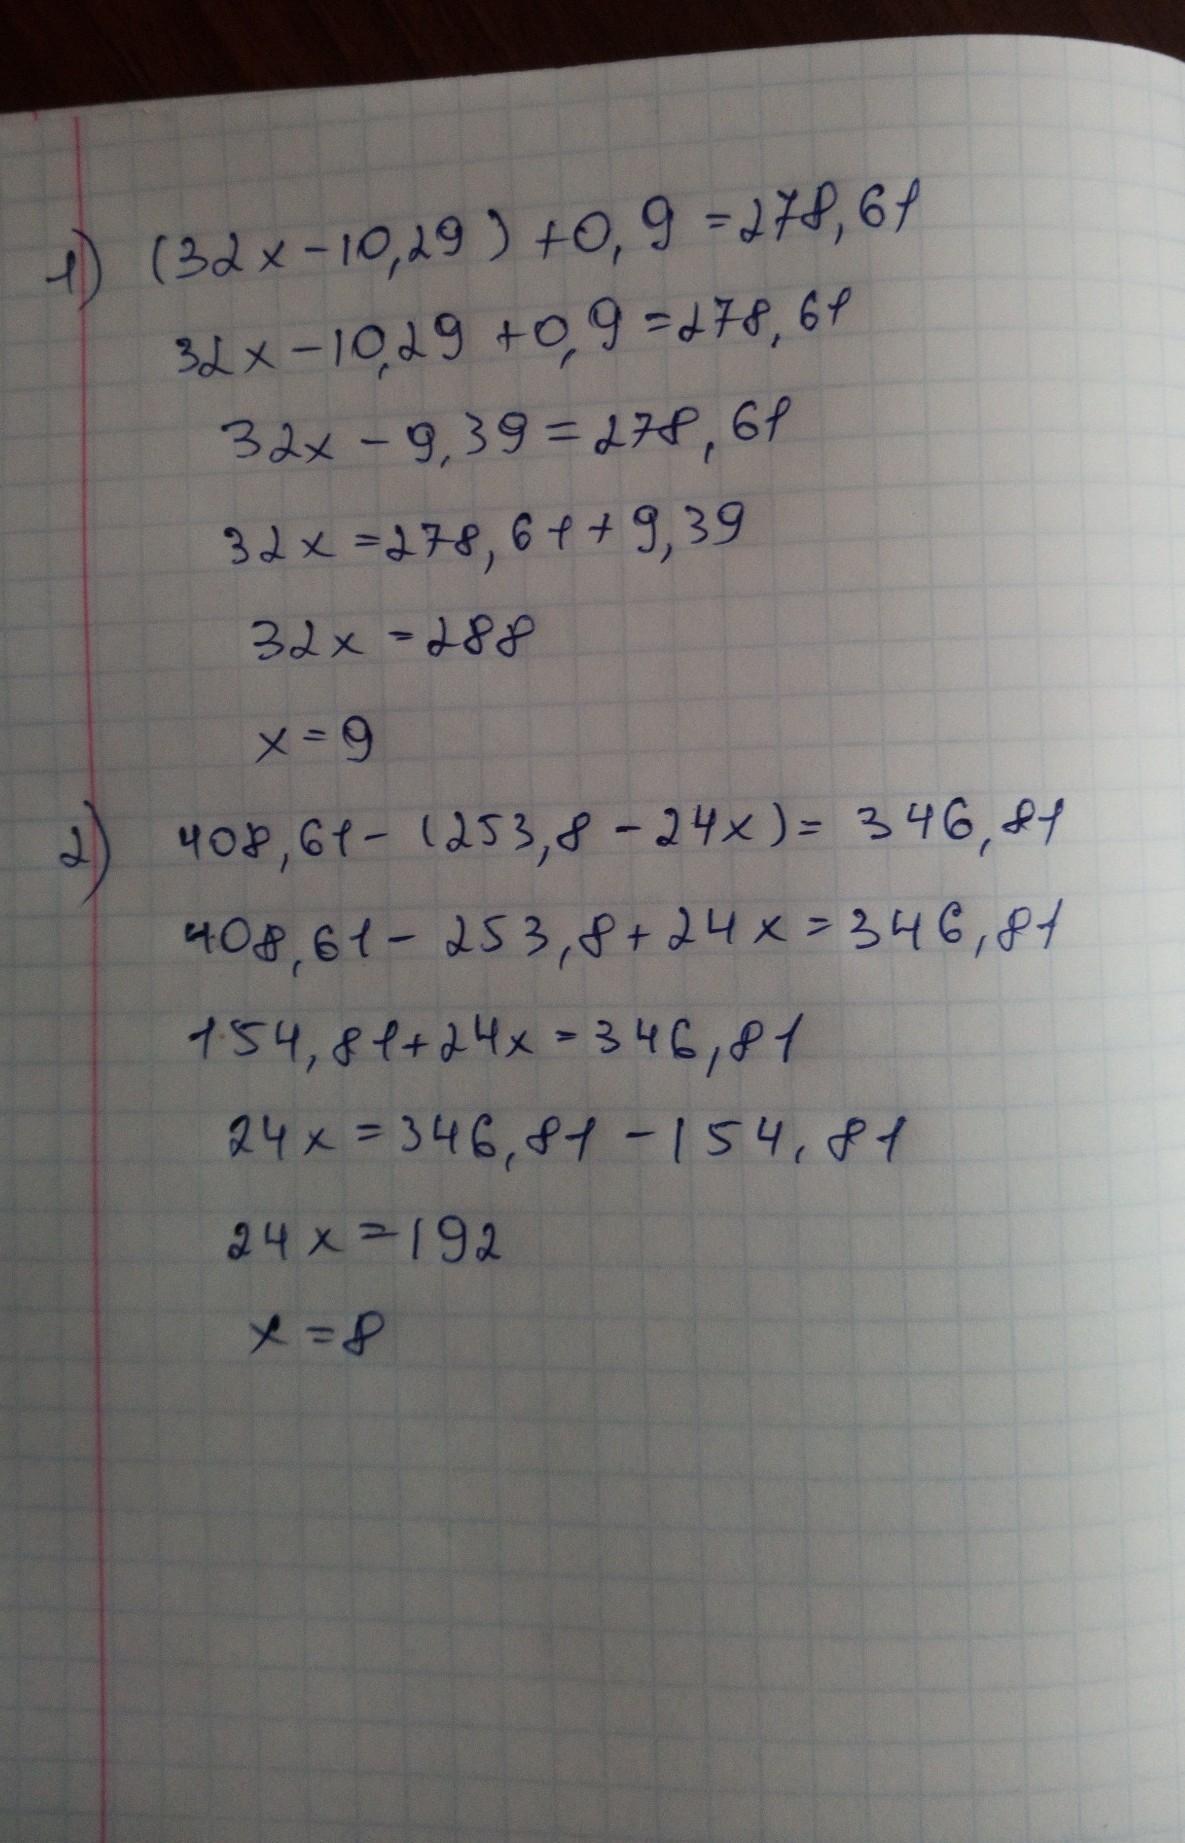 1) (32x-10,29)+0,9=278,61
32x-10,29+0,9=278,61
32x-9,39=278,61
32x=278,61+9,39
32x=288
x=9
2) 408,61-(253,8-24x)=346,81
408,61-253,8+24x=346,81
154,81+24x=346,81
24x=346,81-154,81
24x=192
x=8